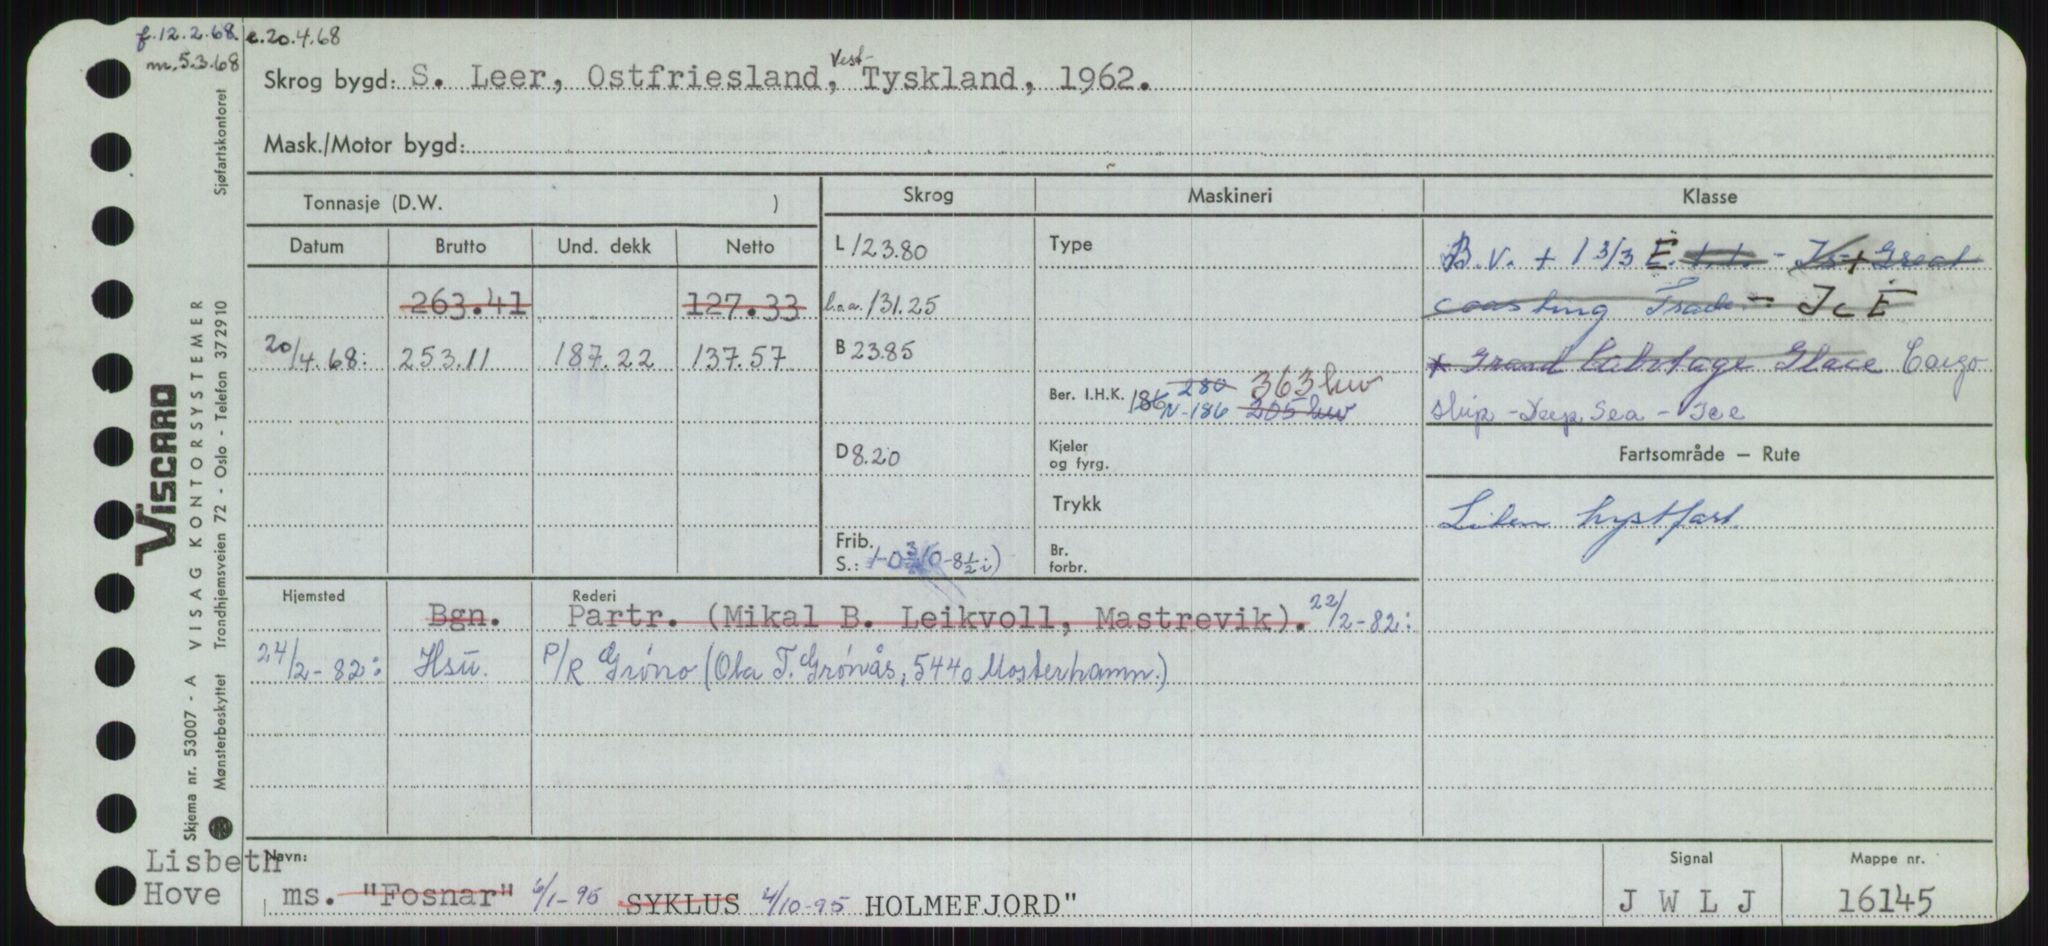 f.12.2.68. e.20.4.68
m.5.3.68
Skrog bygd: S. Leer, Ostfriesland, Vest-Tyskland, 1962.
Mask./Motor bygd:
Tonnasje (D.W. )
Skrog
Maskineri
Klasse
Datum
Brutto
Und. dekk
Netto
L 123.80
Type
B.V. + 1 3/3 E. - + Great
263.41
127.33
l.o.a. 131.25
coasting Trade - Ice
20/4.68: 253.11 187.22 137.57
B 23.85
* Grand Cabotage Glace Cargo
Ber. I.H.K. 186 280 363 kw
N-186 205 kw
ship - Deep Sea - Ice
D 8.20
Kjeler
og fyrg.
Fartsområde — Rute
Trykk
Liten kystfart
Frib.
S.: 1-0 3/4 (0-8 1/2 i)
Br.
forbr.
Hjemsted
Rederi
Bgn. Partr. (Mikal B. Leikvoll, Mastrevik). 22/2-82:
24/2-82: Hsu. P/R Grøno (Ola T. Grønås, 5440 Mosterhamn.)
Navn:
Signal
Mappe nr.
Lisbeth
Hove
ms. "Fosnar" 6/1-95 SYKLUS 4/10-95 HOLMEFJORD"
J W L J
16145
VISCARD
Skjema nr. 53007 - A VISAG KONTORSYSTEMER
Mønsterbeskyttet Trondhjemsveien 72 - Oslo - Telefon 372910 Sjøfartskontoret